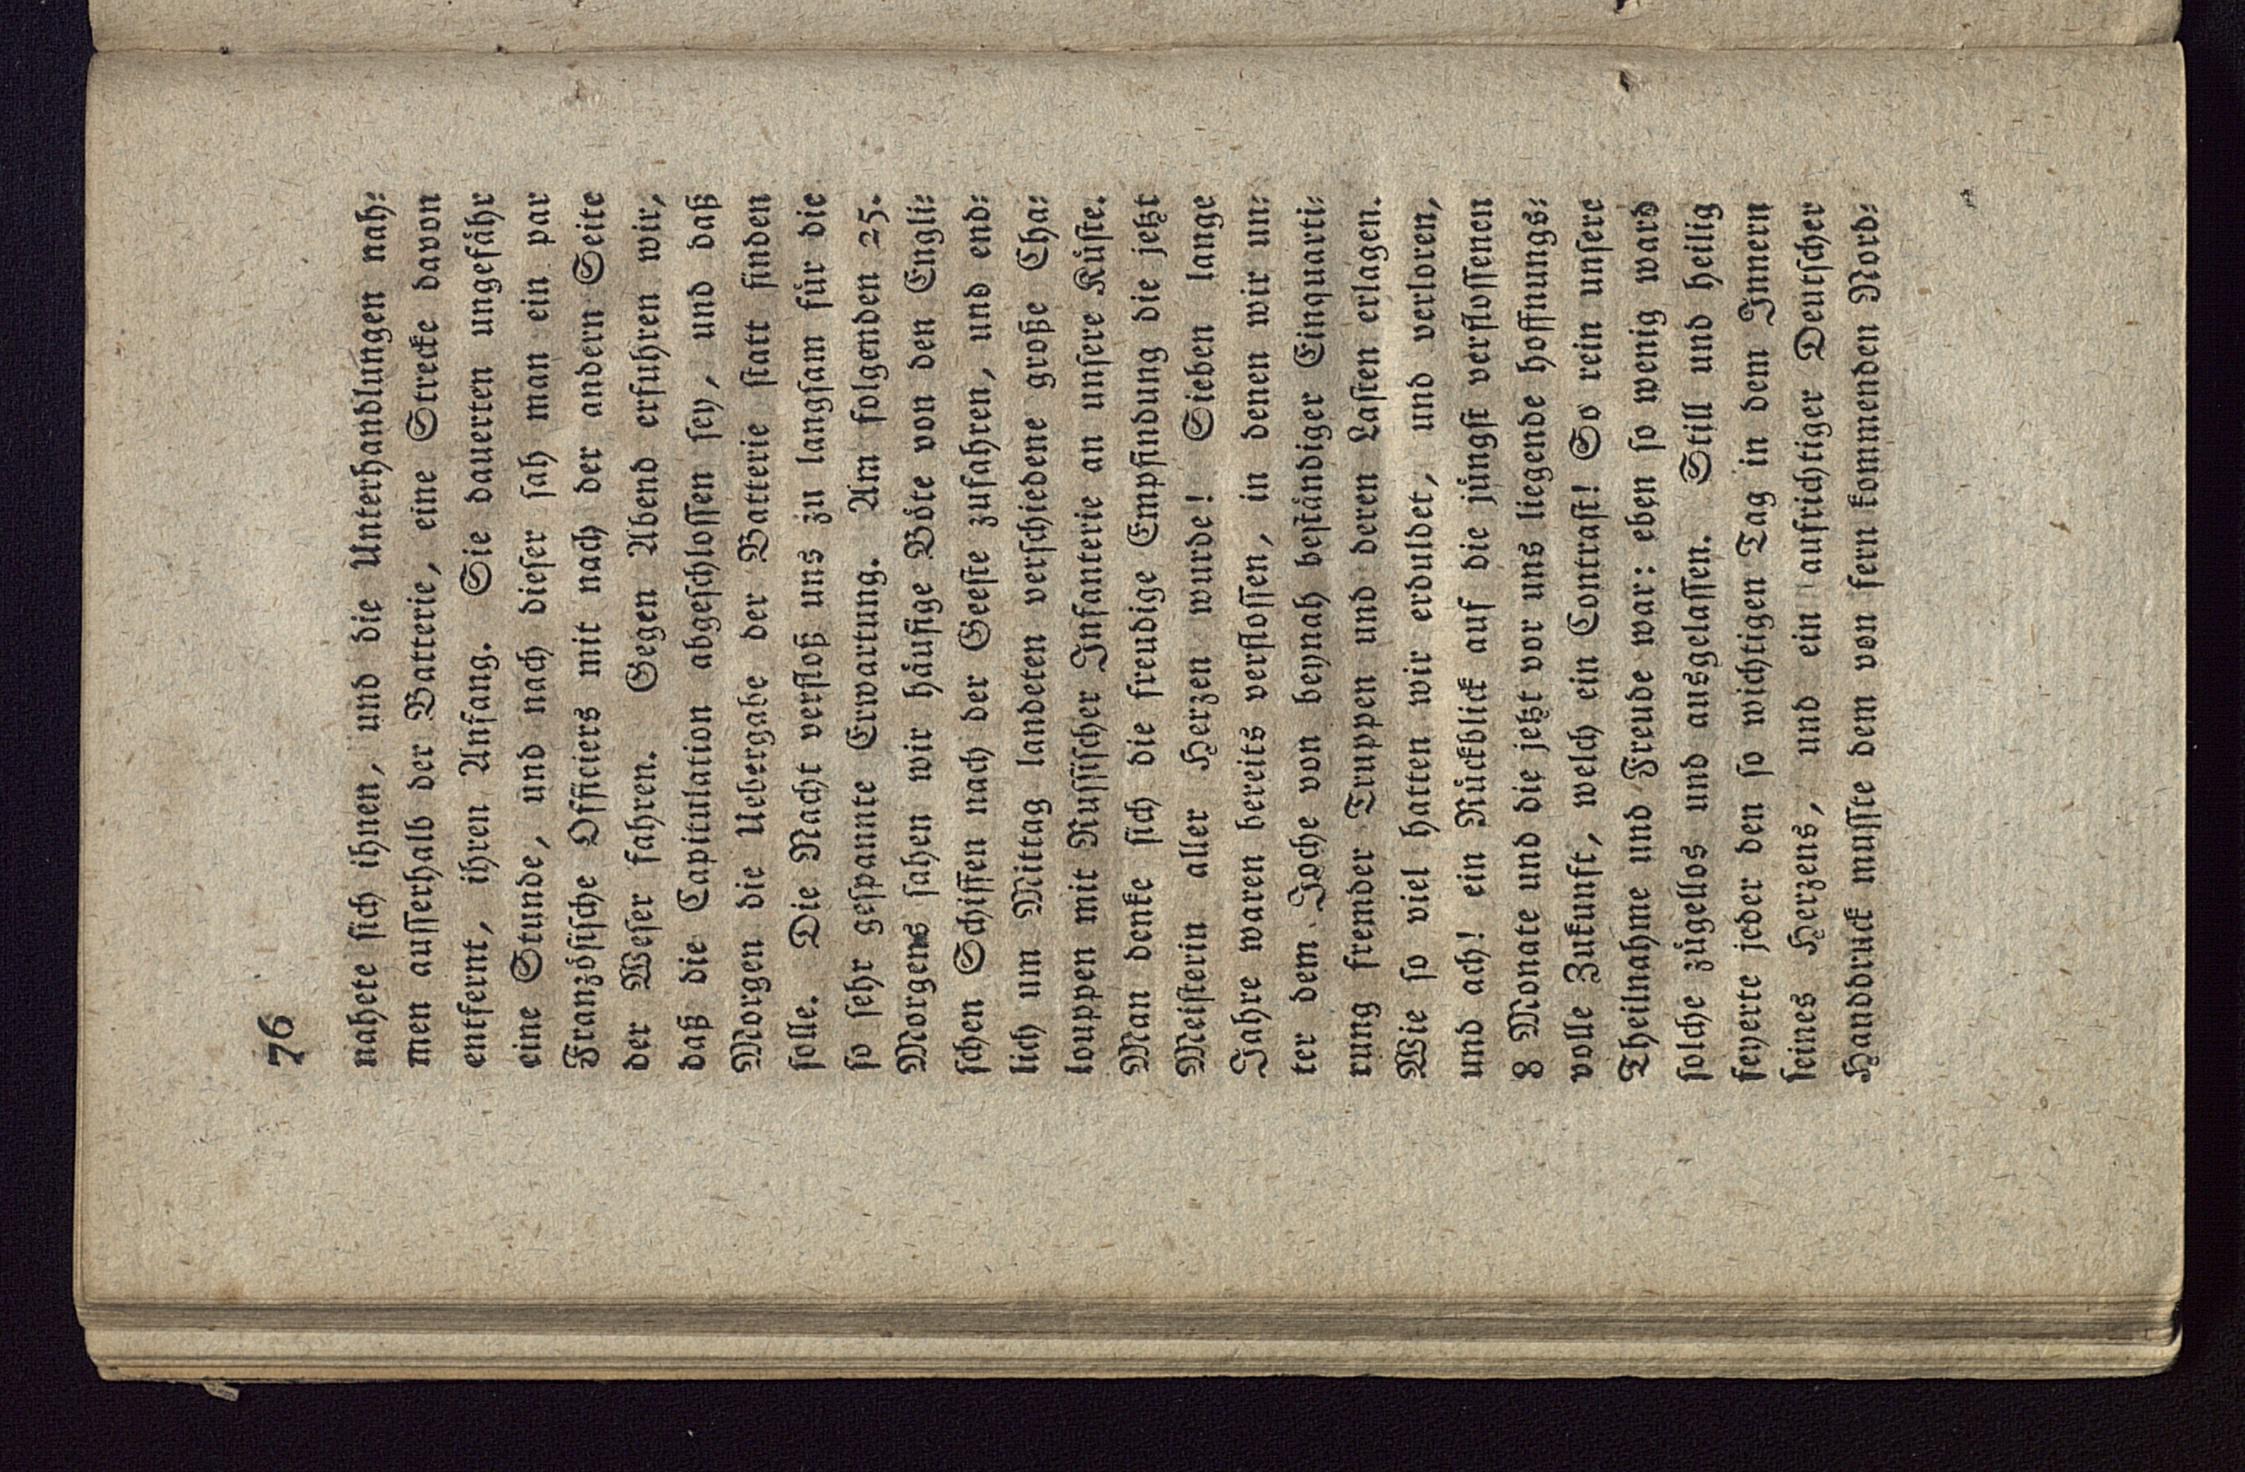 76
nahete ſich ihnen, und die Unterhandlungen nah⸗
men auſſerhalb der Batterie, eine Strecke davon
entfernt, ihren Anfang. Sie dauerten ungefähr
eine Stunde, und nach dieſer ſah man ein par
Franzöſiſche Officiers mit nach der andern Seite
der Weſer fahren. Gegen Abend erfuhren wir,
daß die Capitulation abgeſchloſſen ſey, und daß
Morgen die Uebergabe der Batterie ſtatt finden
ſolle. Die Nacht verfloß uns zu langſam für die
ſo ſehr geſpannte Erwartung. Am folgenden 25.
Morgens ſahen wir häufige Böte von den Engli⸗
ſchen Schiffen nach der Geeſte zufahren, und end⸗
lich um Mittag landeten verſchiedene große Cha⸗
louppen mit Ruſſiſcher Infanterie an unſere Küſte.
Man denke ſich die freudige Empfindung die jetzt
Meiſterin aller Herzen wurde! Sieben lange
Jahre waren bereits verfloſſen, in denen wir un⸗
ter dem Joche von beynah beſtändiger Einquarti⸗
rung fremder Truppen und deren Laſten erlagen.
Wie ſo viel hatten wir erduldet, und verloren,
und ach! ein Rückblick auf die jüngſt verfloſſenen
8 Monate und die jetzt vor uns liegende hoffnungs⸗
volle Zukunft, welch ein Contraſt! So rein unſere
Theilnahme und Freude war: eben ſo wenig ward
ſolche zügellos und ausgelaſſen. Still und heilig
feyerte jeder den ſo wichtigen Tag in dem Innern
ſeines Herzens, und ein aufrichtiger Deutſcher
Handdruck muſſte dem von fern kommenden Nord⸗